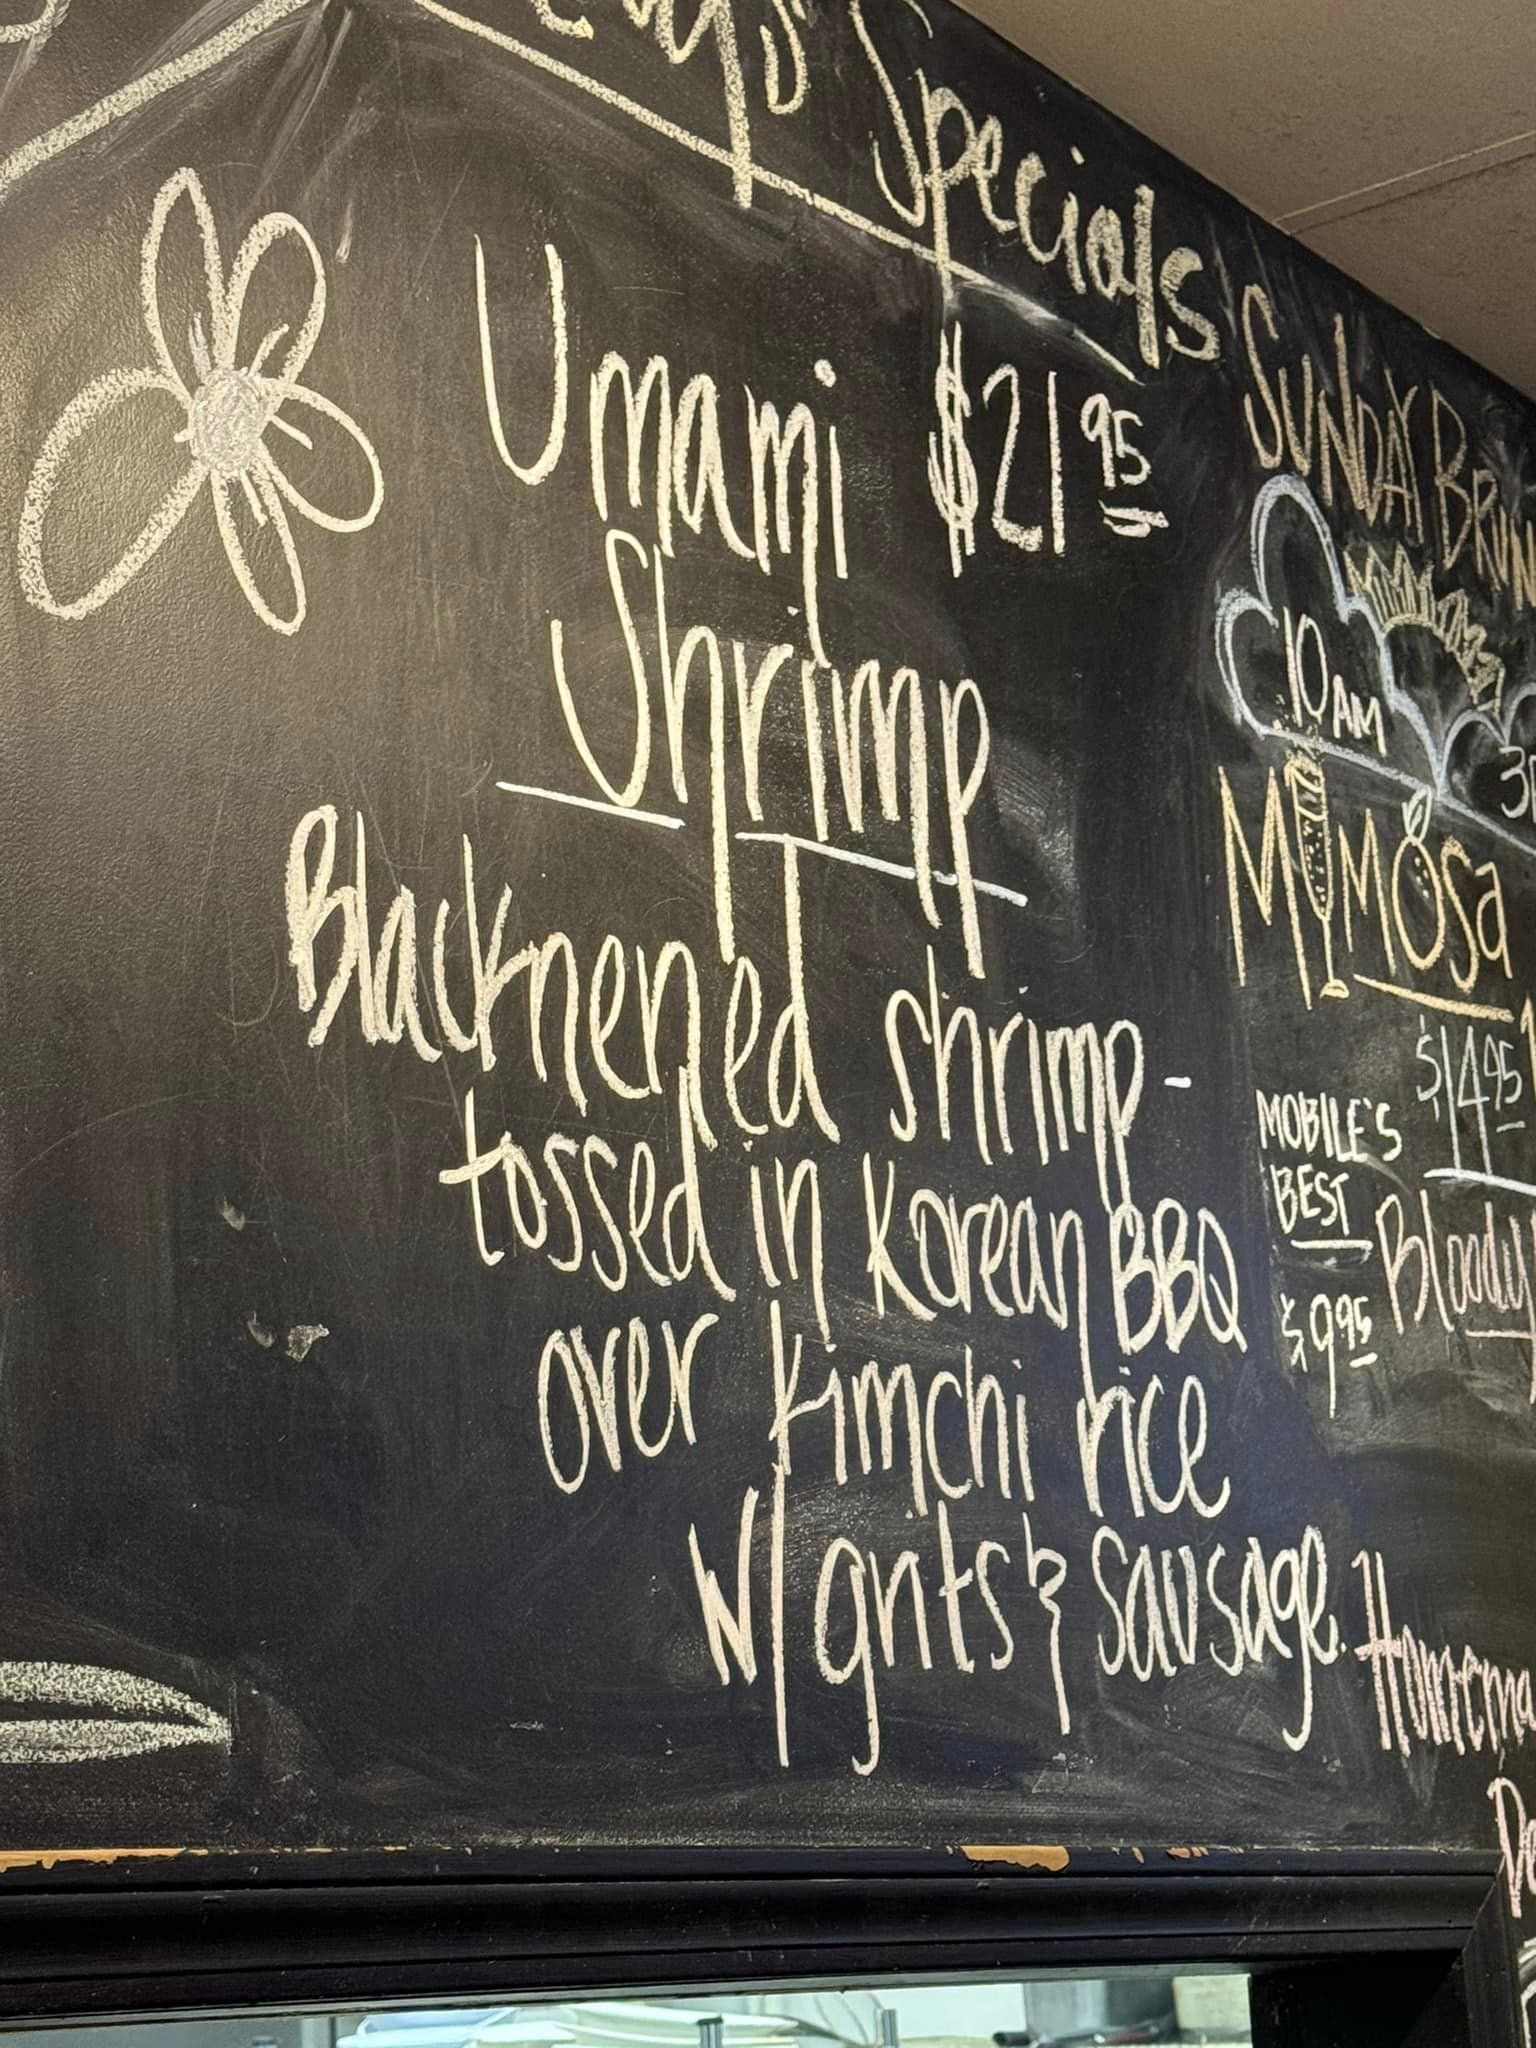 Specials
Umami $21.95
Shrimp
Blacknened shrimp-
tossed in Korean BBQ
over kimchi rice
w/ grits & sausage.
SUNDAY
10 AM
MIMOSA
$14.95
MOBILE'S
BEST
Bloody
$9.95